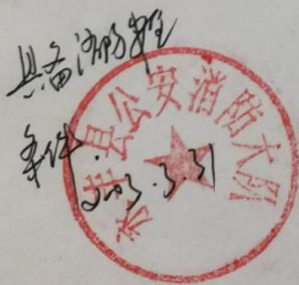 具备消防安全
条件.
2003.3.31
县公安消防大队